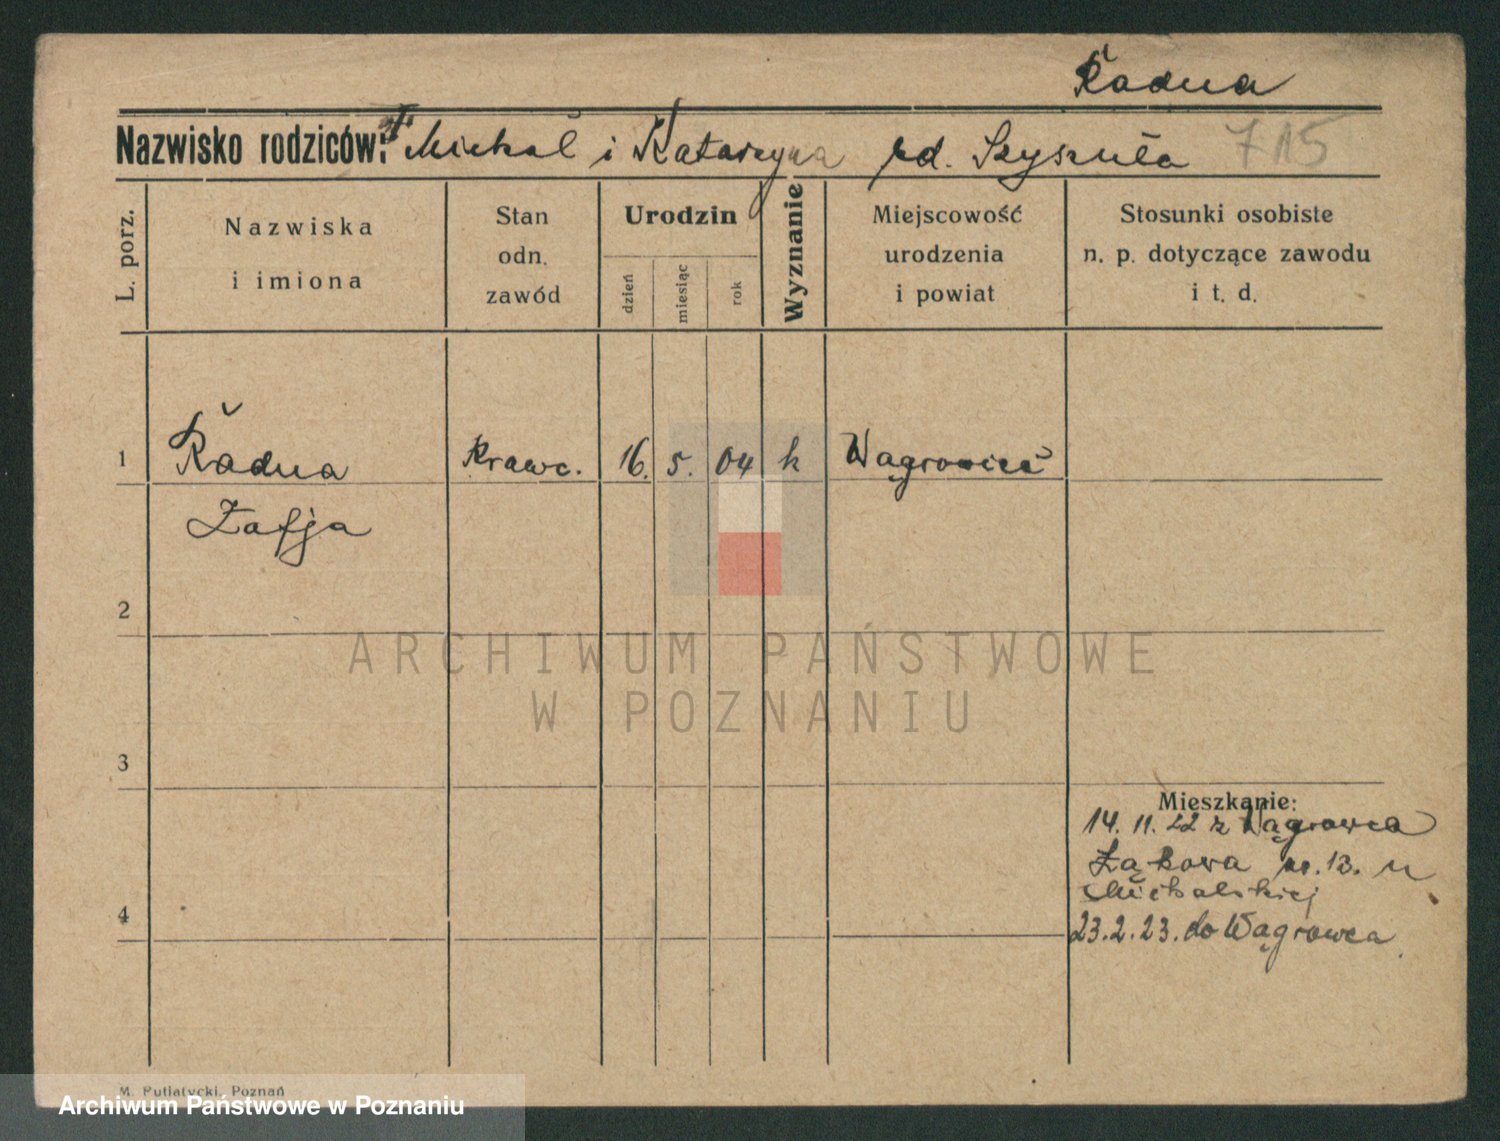 Řadna
Nazwisko rodziców: † Michał i Katarzyna rd. Szyszuła 715
L. porz.
Nazwiska
i imiona
Stan
odn.
zawód
Urodzin
dzień
miesiąc
rok
Wyznanie
Miejscowość
urodzenia
i powiat
Stosunki osobiste
n. p. dotyczące zawodu
i t. d.
1 Řadna Krawc. 16. 5. 04 k Wągrowiec
Zofja
2
ARCHIWUM PAŃSTWOWE
W POZNANIU
3
Mieszkanie:
14. 11. 22 z Wągrowca
Łąkowa nr. 13. u
Michalskiej
4
23. 2. 23. do Wągrowca
M. Putiatycki, Poznań
Archiwum Państwowe w Poznaniu